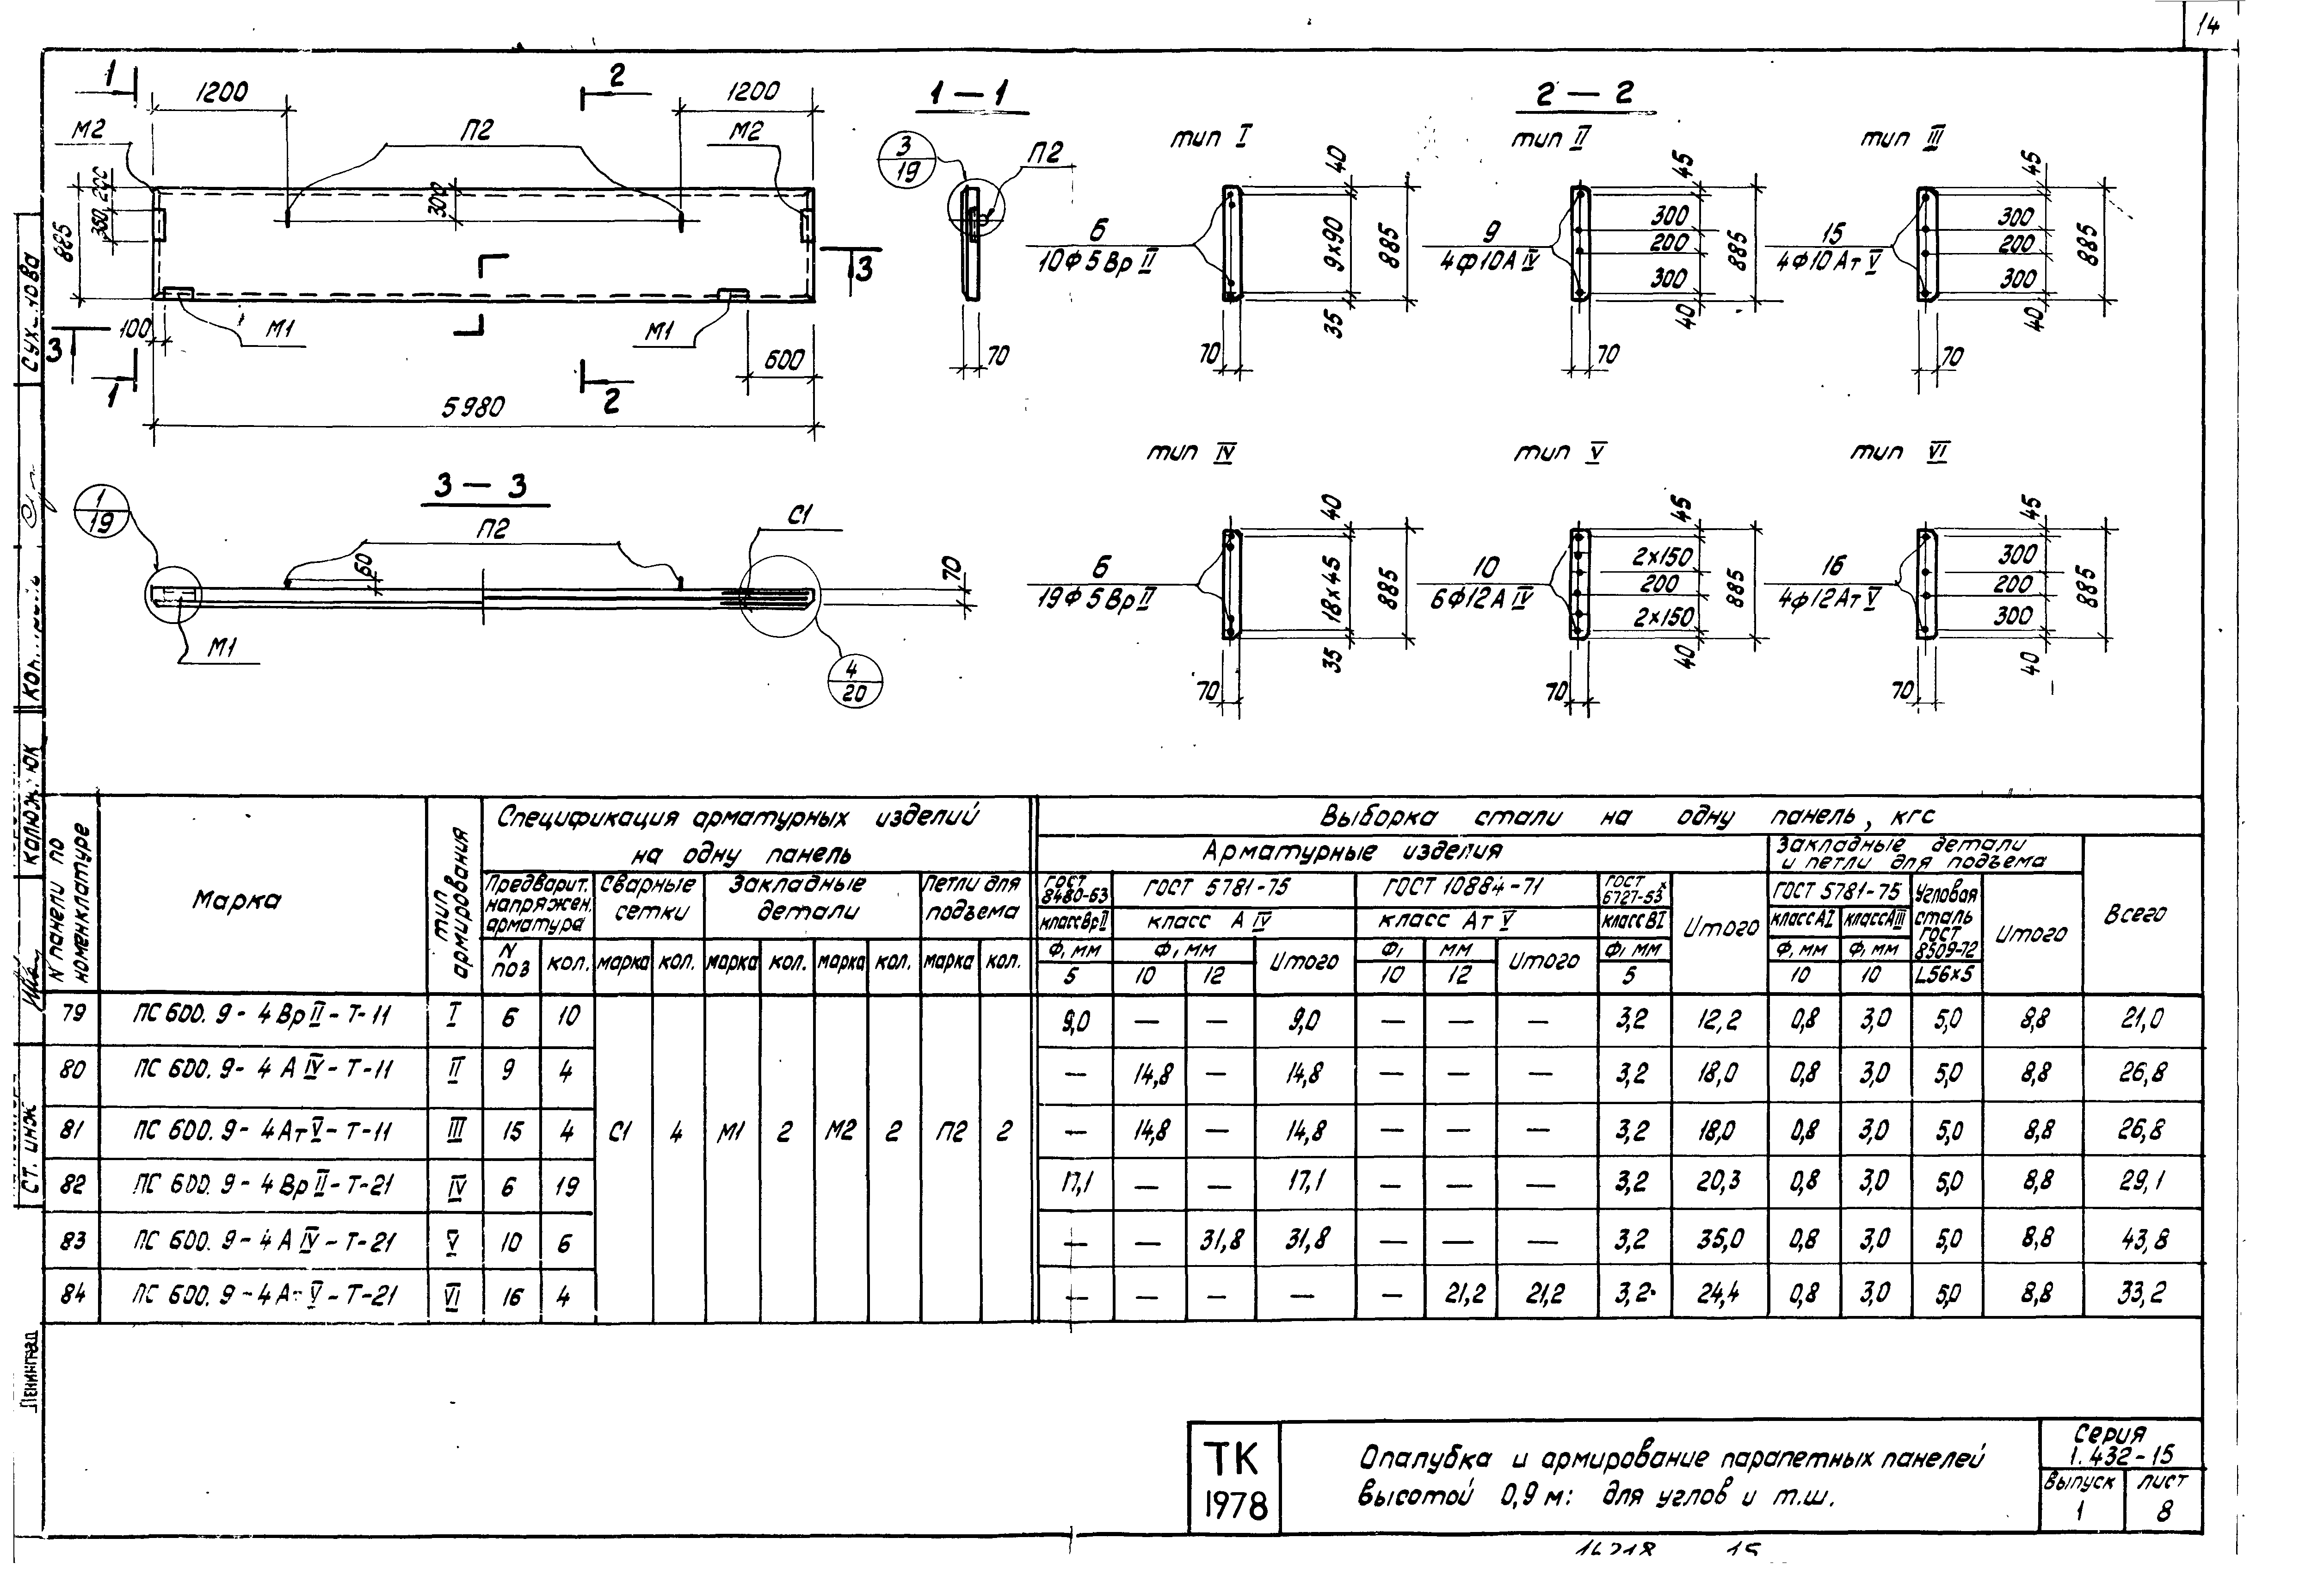 14
1
2
1200
1200
М2
П2
М2
200
380
885
300
3
3
100
М1
М1
600
1
2
5980
1 – 1
3
19
П2
70
2 – 2
тип I
6
10Ф5ВрII
40
9×90
885
35
70
тип II
9
4ф10АIV
45
300
200
300
885
40
70
тип III
15
4ф10АтV
45
300
200
300
885
40
70
3 – 3
1
19
П2
60
С1
70
М1
4
20
тип IV
6
19Ф5ВрII
40
18×45
885
35
70
тип V
10
6Ф12АIV
45
2×150
200
2×150
885
40
70
тип VI
16
4ф12АтV
45
300
200
300
885
40
70
N панели по номенклатуре
Марка
тип армирования
Спецификация арматурных изделий
на одну панель
Предварит. напряжен. арматура
Сварные сетки
Закладные детали
Петли для подъема
N поз
кол.
марка кол. марка кол. марка кол. марка кол.
Выборка стали на одну панель, кгс
Арматурные изделия
Закладные детали и петли для подъема
Всего
ГОСТ 8480-63
ГОСТ 5781-75
ГОСТ 10884-71
ГОСТ 6727-53×
Итого
ГОСТ 5781-75
Угловая сталь ГОСТ 8509-72
Итого
класс ВрII
класс А IV
класс Ат V
класс ВI
класс АI
класс АIII
Ф, мм
Ф, мм
Итого
Ф, мм
Итого
Ф, мм
Ф, мм
Ф, мм
5 10 12 10 12 5 10 10 L56×5
79 ПС 600. 9 - 4 Вр II - Т - 11 I 6 10 9,0 — — 9,0 — — — 3,2 12,2 0,8 3,0 5,0 8,8 21,0
80 ПС 600. 9 - 4 А IV - Т - 11 II 9 4 — 14,8 — 14,8 — — — 3,2 18,0 0,8 3,0 5,0 8,8 26,8
81 ПС 600. 9 - 4 Ат V - Т - 11 III 15 4 С1 4 М1 2 М2 2 П2 2 — 14,8 — 14,8 — — — 3,2 18,0 0,8 3,0 5,0 8,8 26,8
82 ПС 600. 9 - 4 Вр II - Т - 21 IV 6 19 17,1 — — 17,1 — — — 3,2 20,3 0,8 3,0 5,0 8,8 29,1
83 ПС 600. 9 - 4 А IV - Т - 21 V 10 6 — — 31,8 31,8 — — — 3,2 35,0 0,8 3,0 5,0 8,8 43,8
84 ПС 600. 9 - 4 Ат V - Т - 21 VI 16 4 — — — — — 21,2 21,2 3,2 24,4 0,8 3,0 5,0 8,8 33,2
ТК
1978
Опалубка и армирование парапетных панелей
высотой 0,9 м: для углов и т.ш.
Серия
1.432-15
выпуск
1
лист
8
ст. инж
15